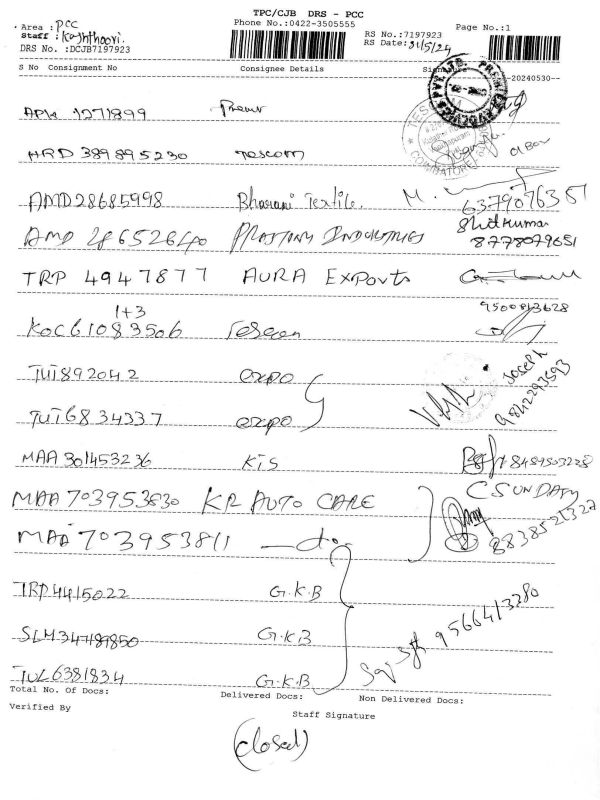 TPC/CJB DRS - PCC
Phone No.:0422-3505555
Page No.:1
Area : PCC
Staff : Kashthoori.
DRS No. :DCJB7197923
RS No.:7197923
RS Date: 31/5/24
S No Consignment No Consignee Details Signature
-20240530--
APK 1271899
HRD 389895230 Tescom
AMD28685998 Bharani Textile. 6379076351
AMD 28652640 INDUSTRIES Shitkumar 8778079651
TRP 4947877 AURA Exports
1+3 9500813628
KOC61083506
TUT892042 expo JOSEPH 9842293593
TUT6834337 expo
MAA 301453236 KTS
MAA 703953830 KR AUTO CARE C SUNDAR
MAA 703953811 —do— 8838521327
TRP4415022 G.K.B
SLM347489850 G.K.B 9566413280
TUL6381834 G.K.B
Total No. Of Docs: Delivered Docs: Non Delivered Docs:
Verified By Staff Signature
(closed)